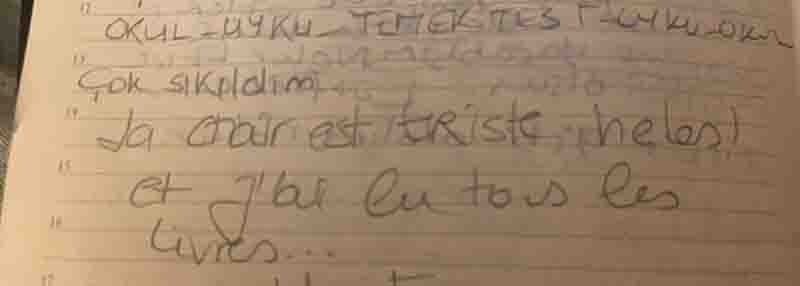 OKUL-UYKU-YEMEK TEST-UYKU-OKUL
Çok sıkıldım
La chair est tRiste, helas!
et j'ai lu tous les
livres...